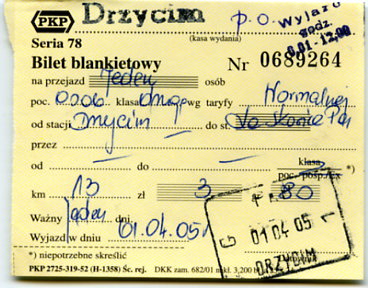 PKP Drzycim p.o. Wyjazd
(kasa wydania) godz.
Seria 78 6.01-12.00
Bilet blankietowy Nr 0689264
na przejazd Jeden osób
poc. osob klasa drug wg taryfy Normalnej
od stacji Drzycim do st.
przez
od do klasa
poc. posp./ex *)
km 13 zł 3 80
Ważny jeden dni
Wyjazd w dniu 01.04.05
01 04 05
DRZYCIM
*) niepotrzebne skreślić
PKP 2725-319-52 (H-1358) Śc. rej. DKK zam. 682/01 nakł. 3,200